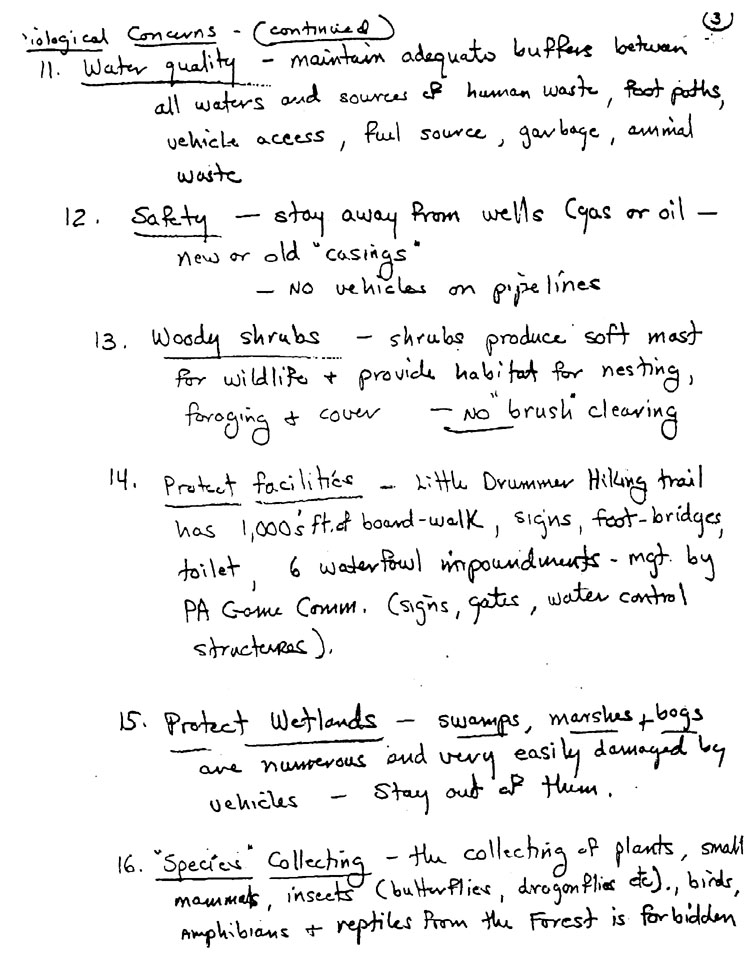 ③
iological Concerns - (continued)
11. Water quality - maintain adequate buffers between
all waters and sources of human waste, foot paths,
vehicle access, fuel source, garbage, animal
waste
12. Safety — stay away from wells (gas or oil —
new or old "casings"
— NO vehicles on pipelines
13. Woody shrubs - shrubs produce soft mast
for wildlife + provide habitat for nesting,
foraging + cover — NO "brush" clearing
14. Protect facilities - Little Drummer Hiking trail
has 1,000's ft. of board-walk, signs, foot-bridges,
toilet, 6 waterfowl impoundments - mgt. by
PA Game Comm. (signs, gates, water control
structures).
15. Protect Wetlands - swamps, marshes + bogs
are numerous and very easily damaged by
vehicles - Stay out of them.
16. "Species" Collecting - the collecting of plants, small
mammals, insects (butterflies, dragonflies etc)., birds,
Amphibians + reptiles from the Forest is forbidden